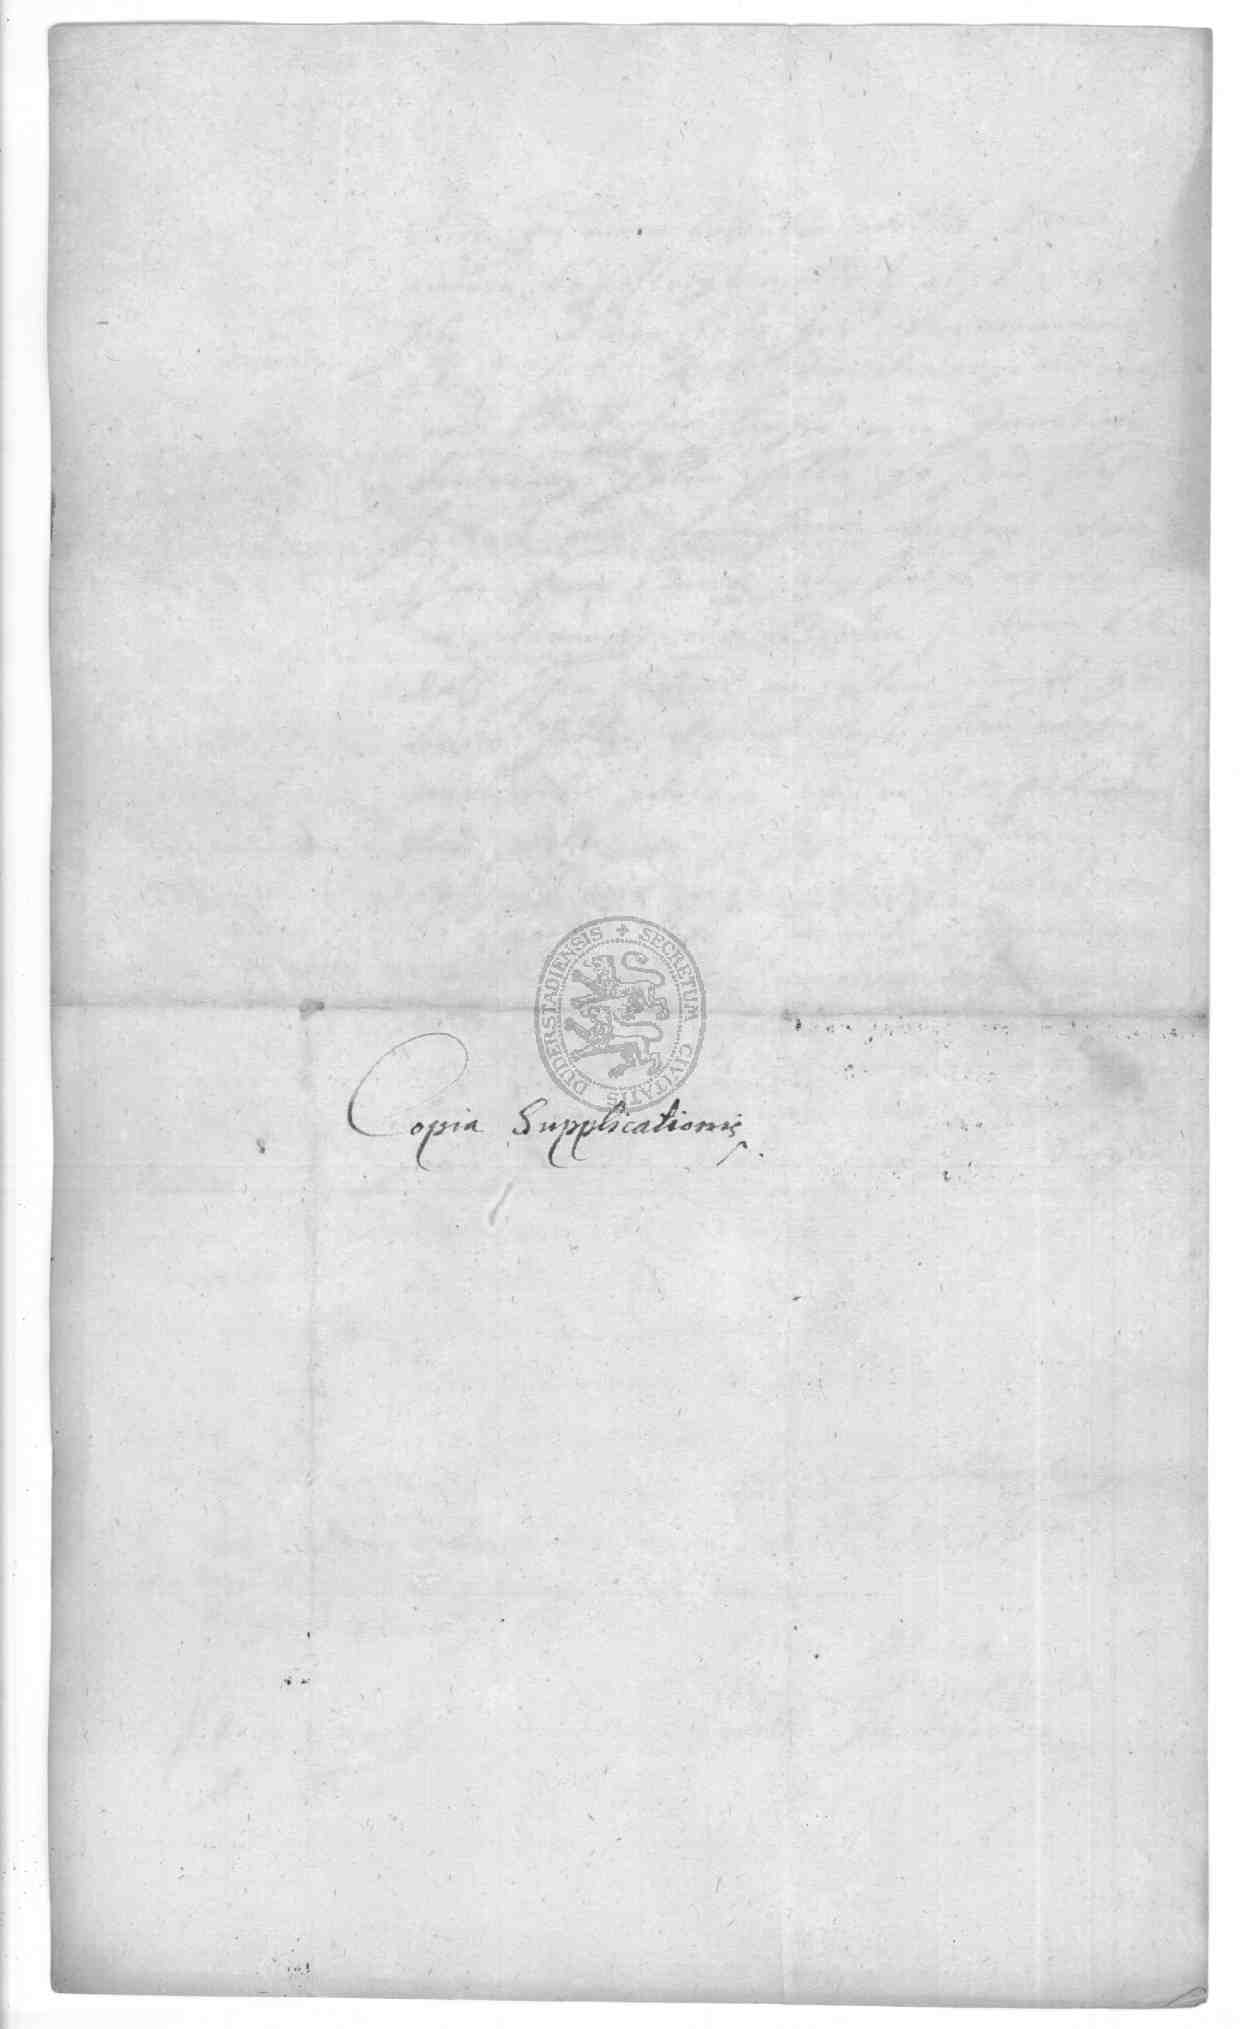 SECRETUM CIVITATIS DUDERSTADIENSIS
Copia Supplicationis.